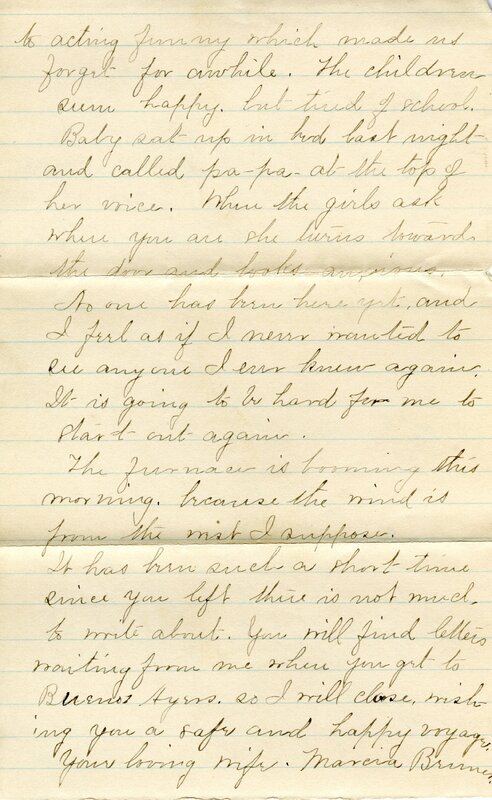 to acting funny which made us
forget for awhile. The children
seem happy. but tired of school.
Baby sat up in bed last night
and called pa-pa- at the top of
her voice. When the girls ask
where you are she turns towards
the door and looks anxious.
No one has been here yet, and
I feel as if I never wanted to
see anyone I ever knew again.
It is going to be hard for me to
start out again.
The furnace is booming this
morning. because the wind is
from the west I suppose.
It has been such a short time
since you left there is not much
to write about. You will find letters
waiting from me when you get to
Buenos Ayers. so I will close, wish-
ing you a safe and happy voyage,
Your loving wife. Marcia